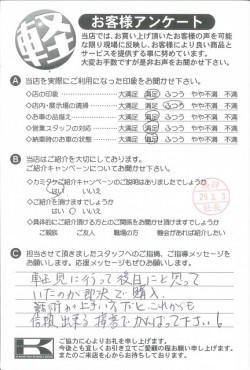 軽
お客様アンケート
当店では、お買い上げ頂いたお客様の声を可能
な限り現場に反映し、お客様により良い商品と
サービスを提供する事に努めています。
大変お手数ですが是非お声をお聞かせ下さい。
A 当店を実際にご利用になった印象をお聞かせ下さい。
◇店の印象 大満足 満足 ふつう やや不満 不満
◇店内・展示場の清掃 大満足 満足 ふつう やや不満 不満
◇お車の品揃え 大満足 満足 ふつう やや不満 不満
◇営業スタッフの対応 大満足 満足 ふつう やや不満 不満
◇納車時のお車の状態 大満足 満足 ふつう やや不満 不満
B 当店はご紹介を大切にしております。
ご紹介キャンペーンについてお聞かせ下さい。
◇カミタケご紹介キャンペーンのご説明はありましたでしょうか
はい いいえ
◇ご紹介を頂けますでしょうか
はい いいえ
◇具体的にご紹介頂ける方との
ご親族 ご友人 職場の方 機会があれば紹介したい
C 担当させて頂きましたスタッフへのご指摘、ご指導メッセージを
お願いします。応援メッセージもぜひお願いします。
車を見に行って後日にと思って
いたのが即決で購入。
これからも
信頼出来る接客でがんばって下さい!
K
ご協力に心よりお礼を申し上げます。
今後とも宜しくお引き立てご愛顧の程お願い申し上げます。
またのご来店を心からお待ちしております。